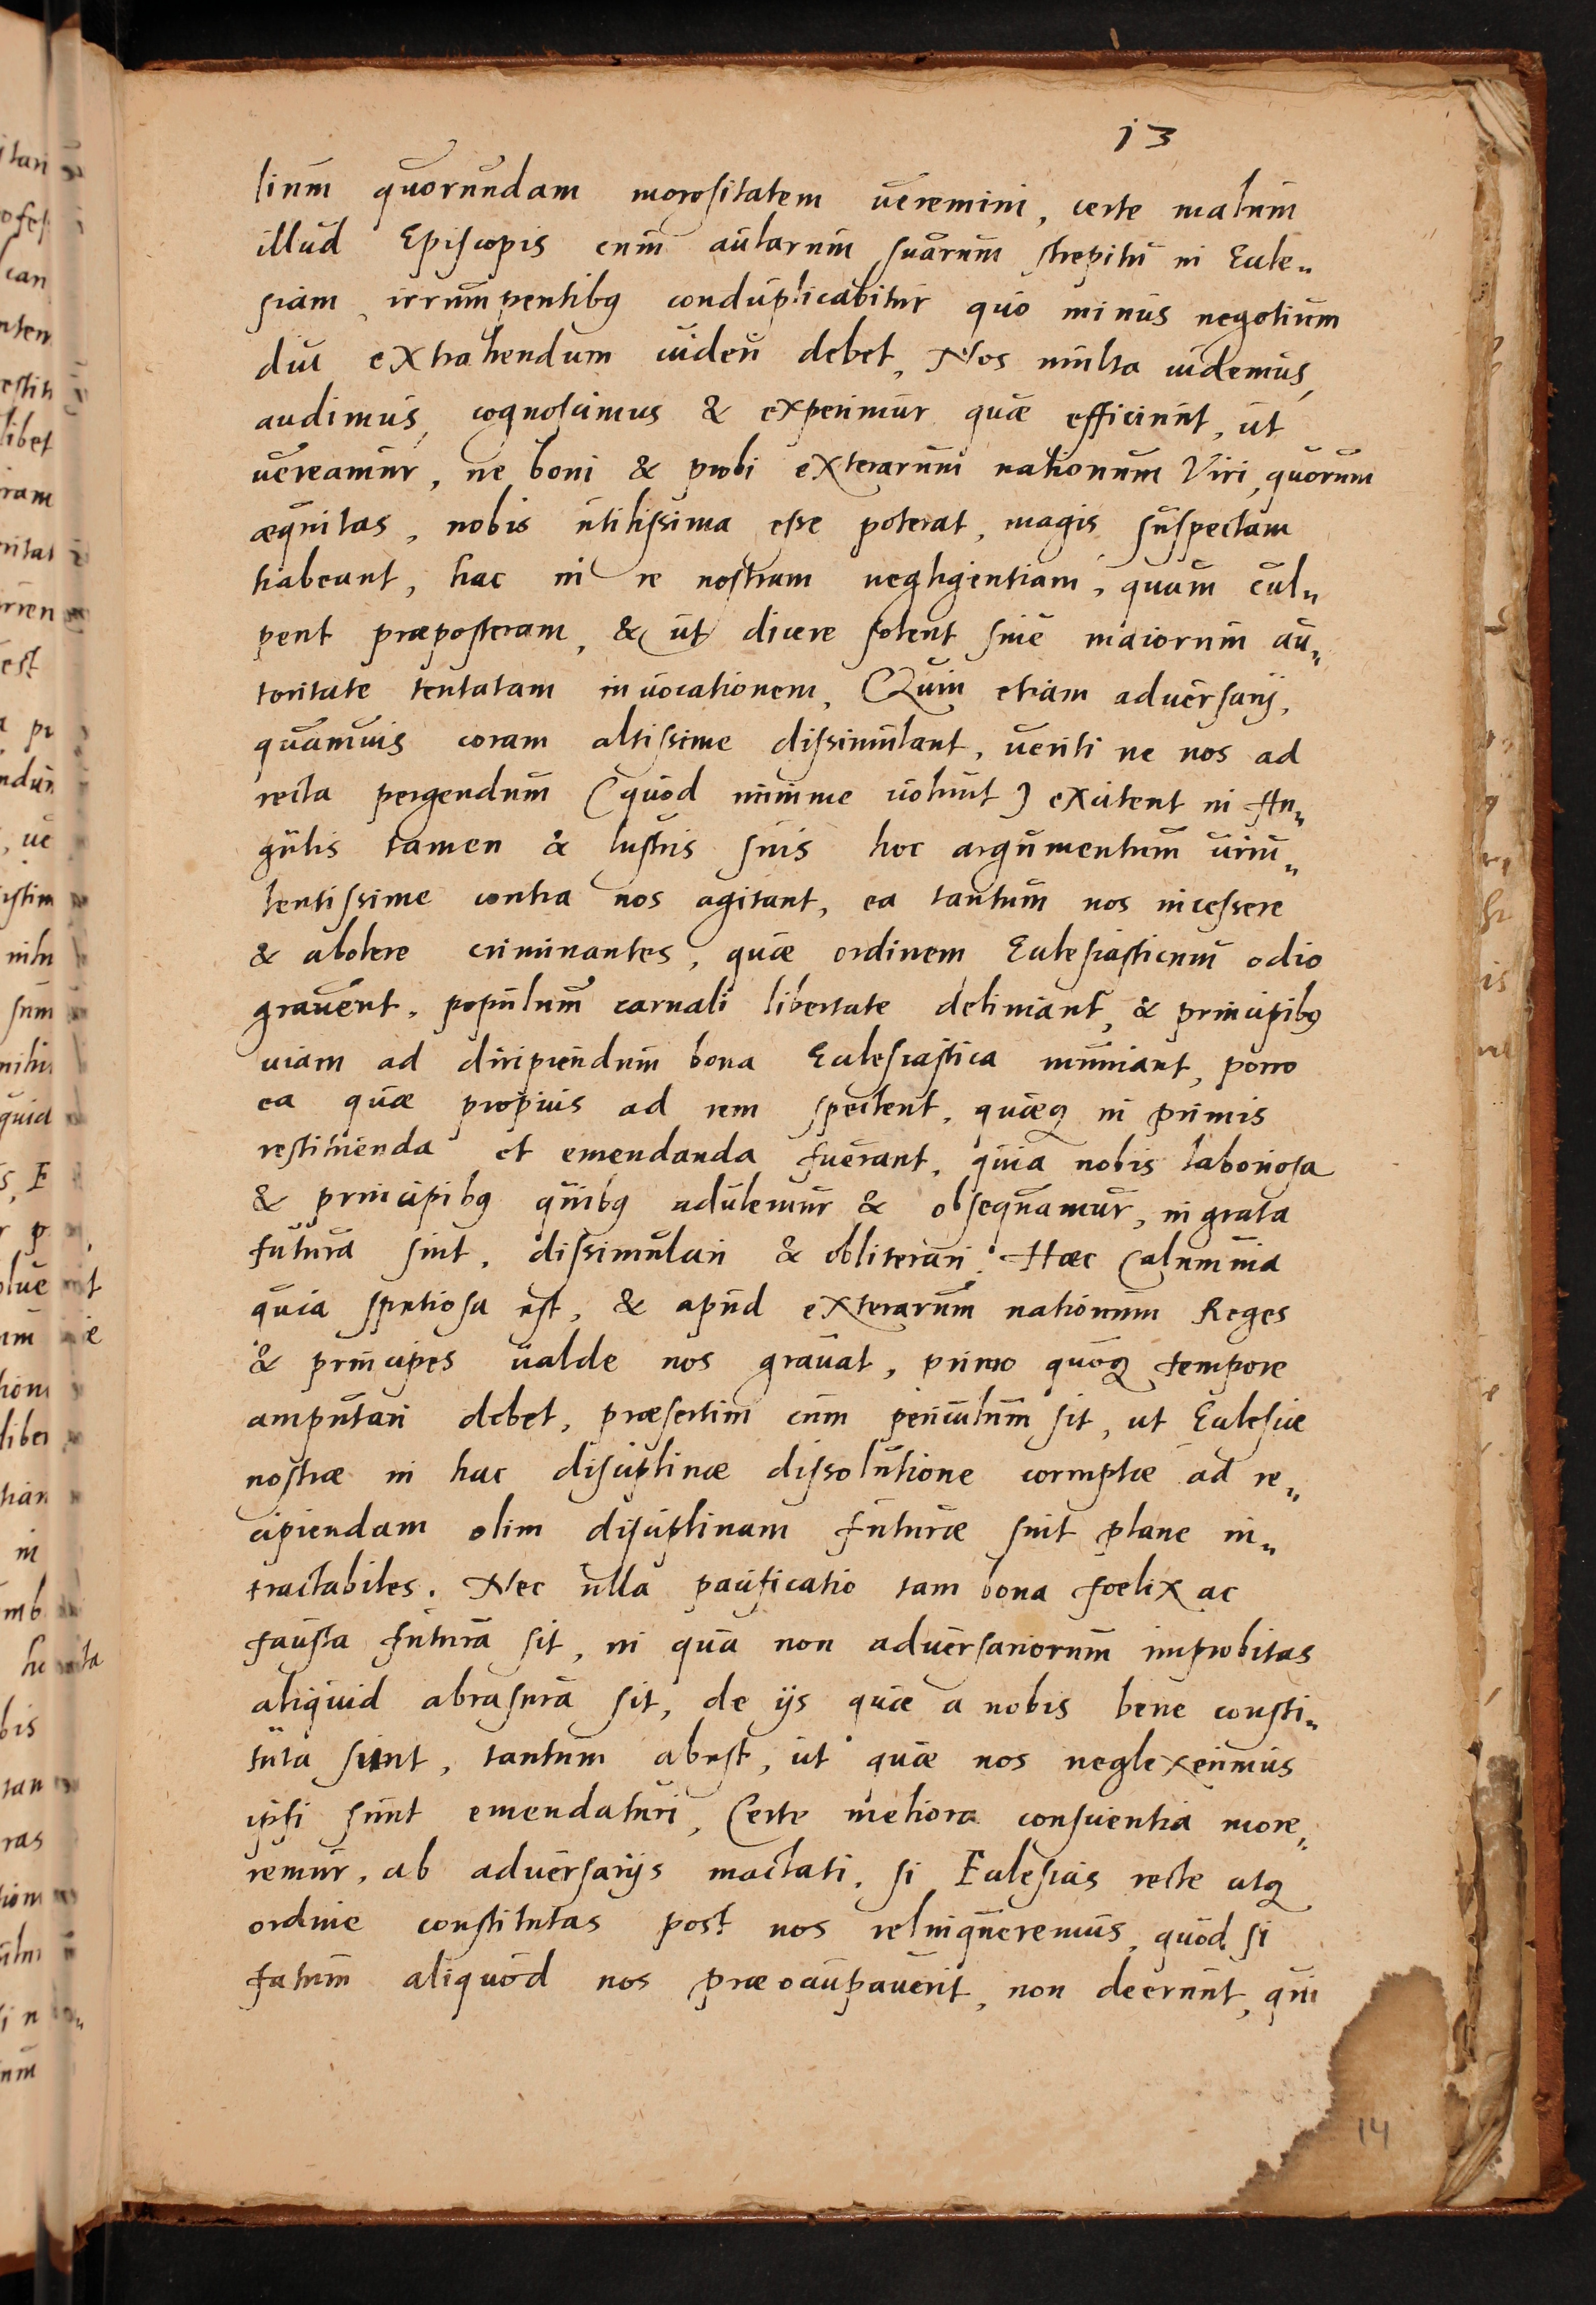 13
lium quorundam morositatem ueremini, certe malum
illud Episcopis cum aularum suarum strepitu in Eccle„
siam irrumpentibꝰ conduplicabitur quo minus negotium
diu extrahendum uideri debet, Nos multa uidemus,
audimus, cognoscimus & experimur quæ efficiunt, ut
uereamur, ne boni & probi exterarum nationum Viri, quorum
æquitas, nobis utilissima esse poterat, magis suspectam
habeant, hac in re nostram negligentiam, quam cul„
pent præposteram, & ut dicere solent sine maiorum au„
toritate tentatam inuocationem, Quin etiam aduersarij,
quamuis coram altissime dissimulant, ueriti ne nos ad
recta pergendum (quod minime uolunt) excitent in An„
gulis tamen & lustris suis hoc argumentum uiru„
lentissime contra nos agitant, ea tantum nos incessere
& abolere criminantes, quæ ordinem Ecclesiasticum odio
grauent, populum carnali libertate deliniant, & principibꝰ
uiam ad diripiendum bona Ecclesiastica muniant, porro
ea quæ propius ad rem spectent, quæqꝫ in primis
restituenda et emendanda fuerant, quia nobis laboriosa
& principibꝰ quibꝰ adulemur & obsequamur, ingrata
futura sint, dissimulari & obliterari. Hæc Calumnia
quia spetiosa est, & apud exterarum nationum Reges
& principes ualde nos grauat, primo quoqꝫ tempore
amputari debet, præsertim cum periculum sit, ut Eclesiæ
nostræ in hac disciplinæ dissolutione corruptæ ad re„
cipiendam olim disciplinam futuræ sint plane in„
tractabiles. Nec ulla pacificatio tam bona fœlix ac
fausta futura sit, in qua non aduersariorum improbitas
aliquid abrasura sit, de ijs quæ a nobis bene consti„
tuta sunt, tantum abest, ut quæ nos neglexerimus
ipsi sunt emendaturi, Certe meliora conscientia more„
remur, ab aduersarijs mactati, si Eclesias recte atqꝫ
ordine constitutas post nos relinqueremus, quod si
fatum aliquod nos præoccupauerit, non deerunt, qui
14